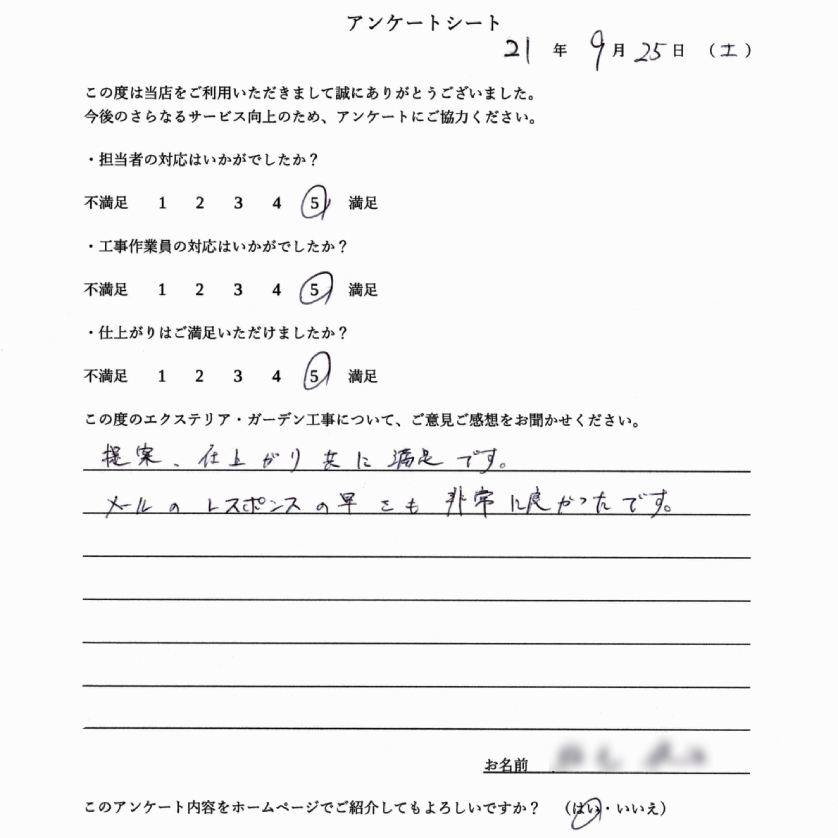 アンケートシート
21 年 9月 25日 (土)
この度は当店をご利用いただきまして誠にありがとうございました。
今後のさらなるサービス向上のため、アンケートにご協力ください。
・担当者の対応はいかがでしたか?
不満足 1 2 3 4 5 満足
・工事作業員の対応はいかがでしたか?
不満足 1 2 3 4 5 満足
・仕上がりはご満足いただけましたか?
不満足 1 2 3 4 5 満足
この度のエクステリア・ガーデン工事について、ご意見ご感想をお聞かせください。
提案、仕上がり共に満足です。
メールのレスポンスの早さも非常に良かったです。
お名前
このアンケート内容をホームページでご紹介してもよろしいですか? (はい・いいえ)